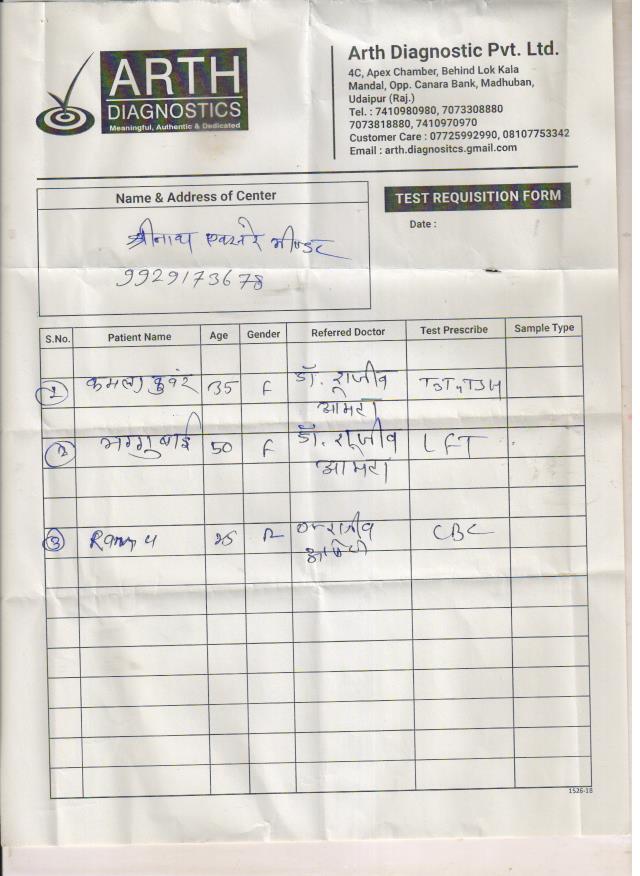 ARTH
DIAGNOSTICS
Meaningful, Authentic & Dedicated
Arth Diagnostic Pvt. Ltd.
4C, Apex Chamber, Behind Lok Kala
Mandal, Opp. Canara Bank, Madhuban,
Udaipur (Raj.)
Tel. : 7410980980, 7073308880
7073818880, 7410970970
Customer Care : 07725992990, 08107753342
Email : arth.diagnositcs.gmail.com
Name & Address of Center
श्रीनाथ एक्सरे भीण्डर
9929173678
TEST REQUISITION FORM
Date :
S.No. Patient Name Age Gender Referred Doctor Test Prescribe Sample Type
1 कमला कुवंर 35 F डॉ. राजीव T3T4TSH
आमेटा
2 भग्गु बाई 50 F डॉ. राजीव LFT
आमेटा
3 25 Dr राजीव CBC
1526-18